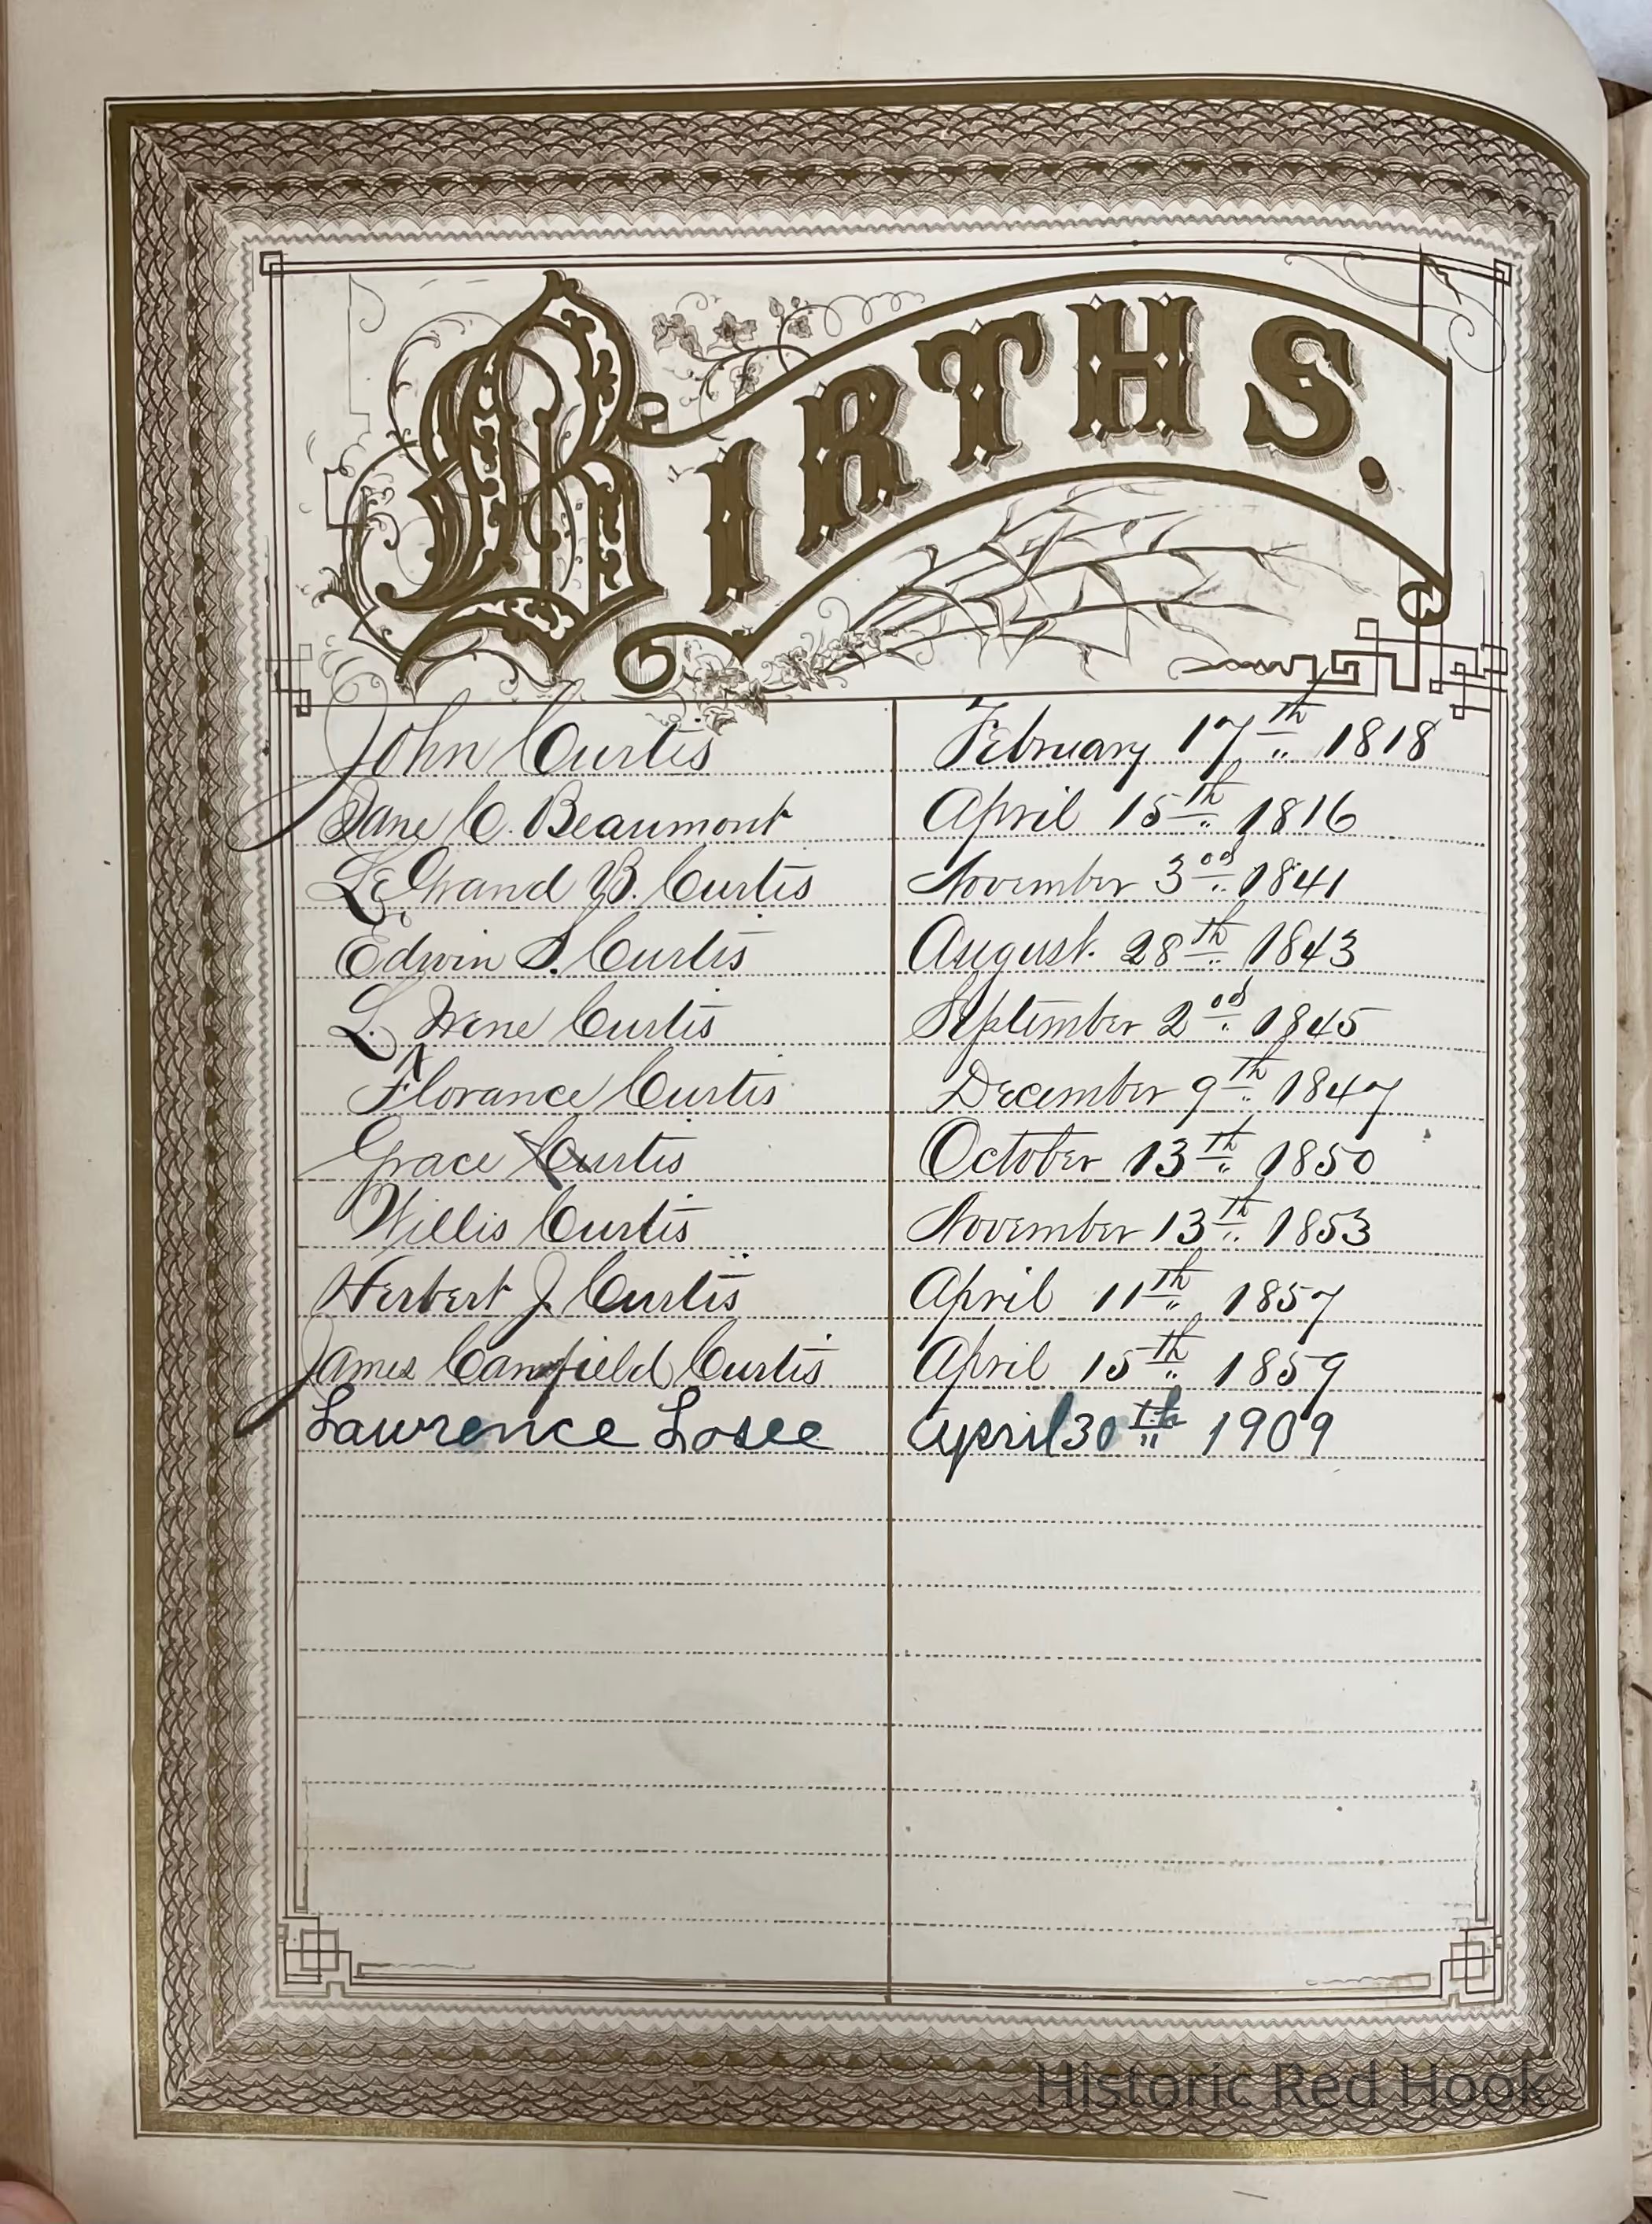 BIRTHS.
John Curtis February 17th 1818
Jane C. Beaumont April 15th 1816
LeGrand B. Curtis November 3rd 1841
Edwin S. Curtis August. 28th 1843
L. Irene Curtis September 2nd 1845
Florance Curtis December 9th 1847
Grace Curtis October 13th 1850
Willis Curtis November 13th 1853
Herbert J. Curtis April 11th 1857
James Canfield Curtis April 15th 1859
Lawrence Losee April 30th 1909
Historic Red Hook